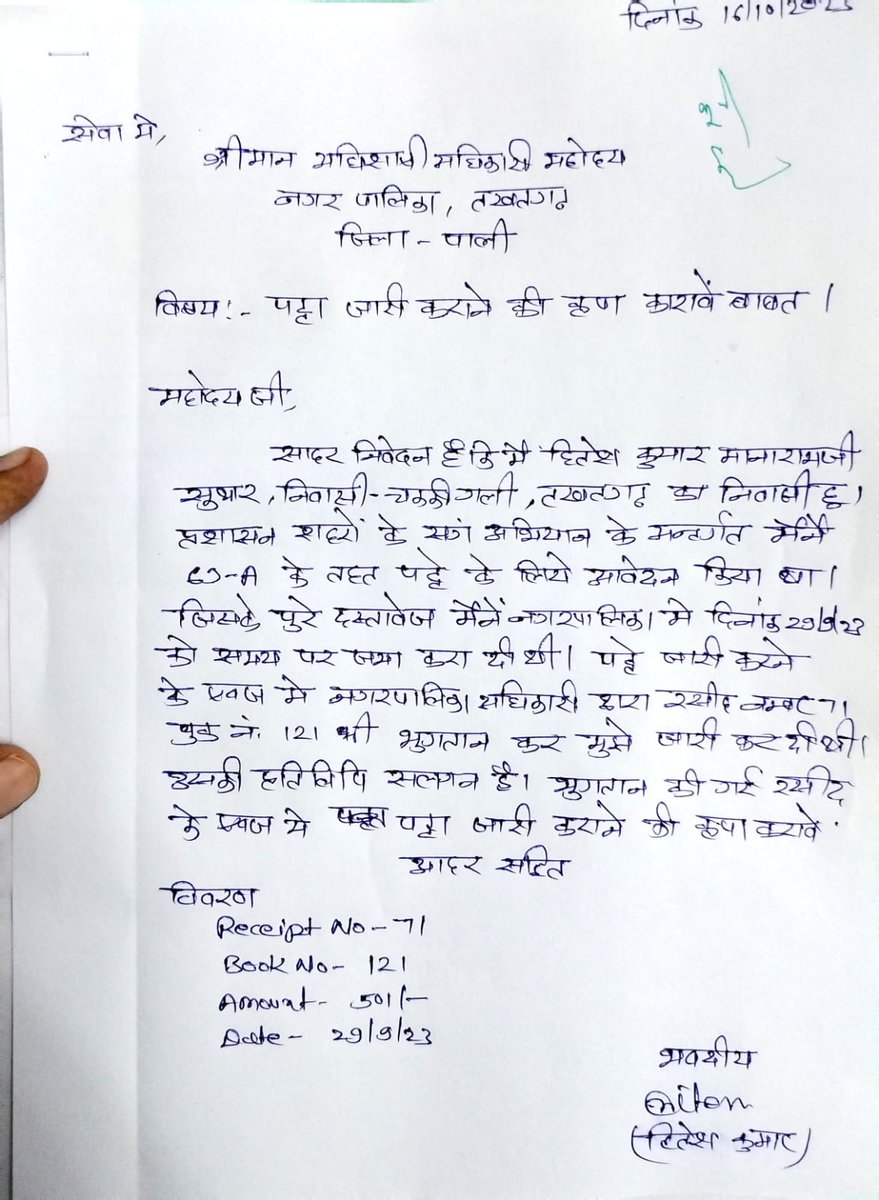 दिनांक 16/10/2023
सेवा मे,
श्रीमान अधिशाषी अधिकारी महोदय
नगर पालिका, तखतगढ़
जिला - पाली
विषय :- पट्टा जारी कराने की कृपा करावें बाबत ।
महोदय जी,
सादर निवेदन है कि मैं हितेश कुमार मानारामजी
सुथार, निवासी - चक्कीगली, तखतगढ़ का निवासी हु ।
प्रशासन शहरों के संग अभियान के अन्तर्गत मैंने
69-A के तहत पट्टे के लिये आवेदन किया था ।
जिसके पुरे दस्तावेज मैंनें नगरपालिका मे दिनांक 29/9/23
को समय पर जमा करा दी थी । पट्टे जारी करने
के एवज मे नगरपालिका अधिकारी द्वारा रसीद नम्बर 71
बुक नं. 121 भी भुगतान कर मुझे जारी कर दी थी ।
उसकी प्रतिलिपि सलग्न है । भुगतान की गई रसीद
के एवज मे पट्टा जारी कराने की कृपा करावे
आदर सहित
विवरण
Receipt No - 71
Book No - 121
Amount - 501/-
Date - 29/9/23
भवदीय
(हितेश कुमार)